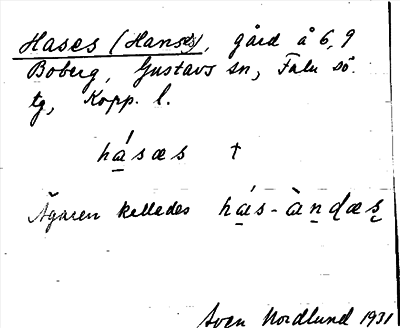 Hases (Hanses), gård å 6,9
Boberg, Gustavs sn, Falu sö.
tg, Kopp. l.
hásæs †
Ägaren kallades hás-àndæs
Sven Nordlund 1931